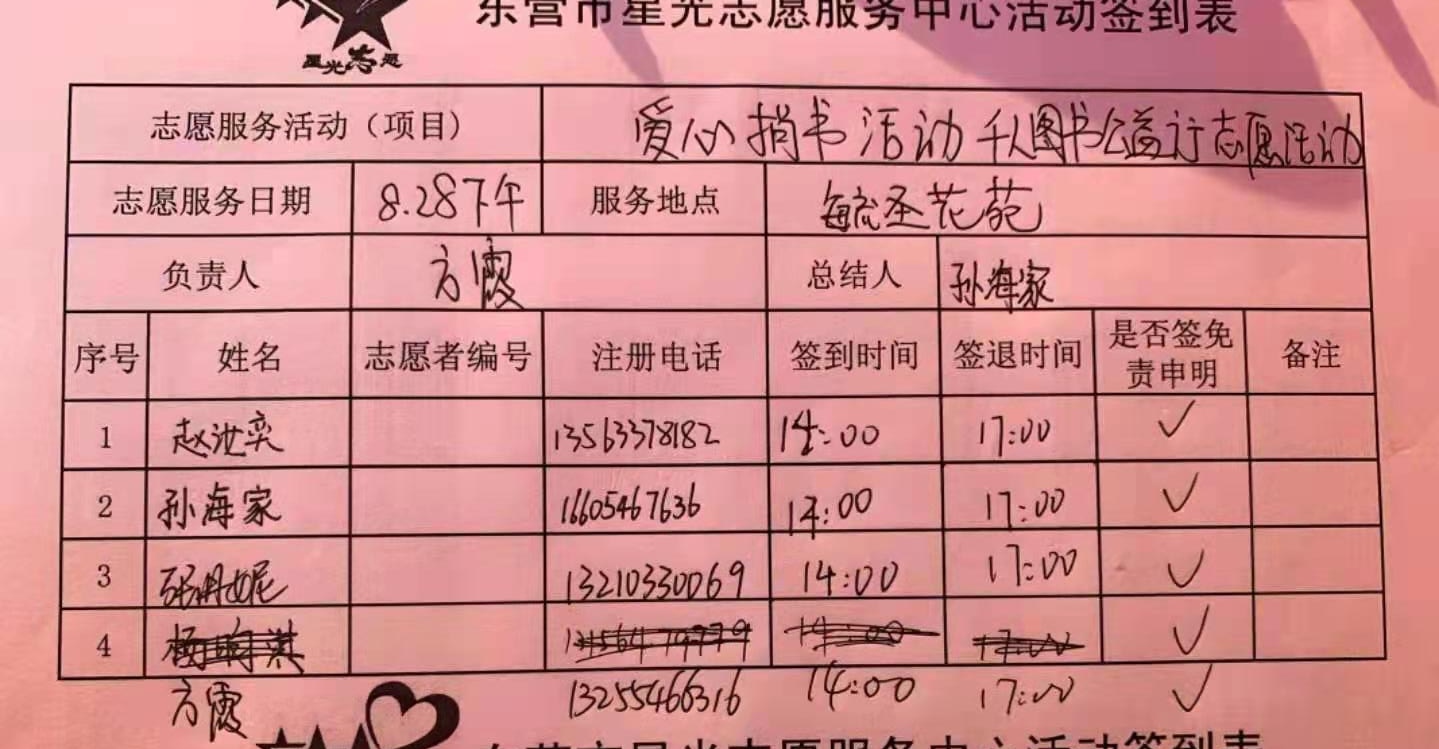 东营市星光志愿服务中心活动签到表
星光志愿
志愿服务活动（项目） 爱心捐书活动 千人图书公益行志愿活动
志愿服务日期 8.28下午 服务地点 毓圣花苑
负责人 方霞 总结人 孙海家
序号 姓名 志愿者编号 注册电话 签到时间 签退时间 是否签免责申明 备注
1 赵汝奕 13563378182 14:00 17:00 ✓
2 孙海家 16605467636 14:00 17:00 ✓
3 张丹妮 13210330069 14:00 17:00 ✓
4 14:00 17:00 ✓
方霞 13255466316 14:00 17:00 ✓
东营市星光志愿服务中心活动签到表